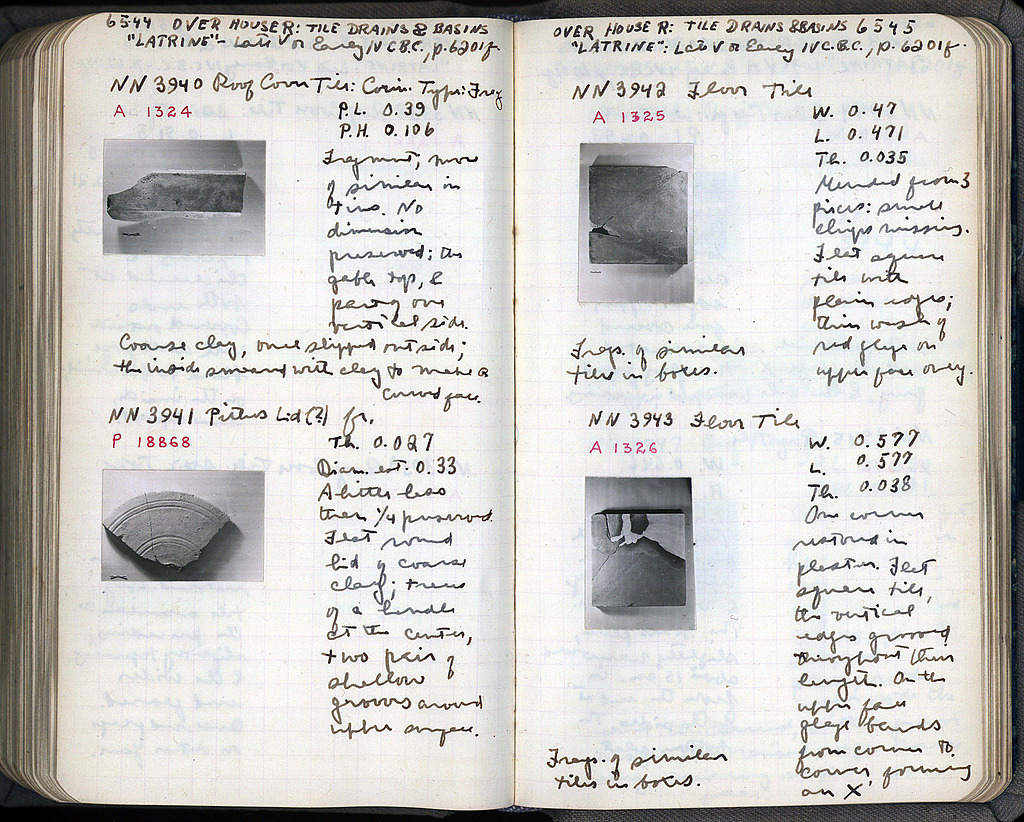 6544 OVER HOUSE R: TILE DRAINS & BASINS
"LATRINE" - Late V or Early IV C.B.C., p. 6201f.
NN 3940 Roof Cover Tile: Corin. Type: Frag
A 1324
P.L. 0.39
P.H. 0.106
Fragment; more
of similar in
tins. No
dimension
preserved; the
gable top, &
part of one
vertical side.
Coarse clay, once slipped outside;
the inside smeared with clay to make a
curved face.
NN 3941 Pithos Lid (?) fr.
P 18868
Th. 0.027
Diam. est. 0.33
A little less
than 1/4 preserved.
Flat round
lid of coarse
clay; trace
of a handle
at the center,
two pair of
shallow
grooves around
upper surface.
OVER HOUSE R: TILE DRAINS & BASINS 6545
"LATRINE": Late V or Early IV C.B.C., p. 6201f.
NN 3942 Floor Tile
A 1325
W. 0.47
L. 0.471
Th. 0.035
Mended from 3
pieces: small
chips missing.
Flat square
tile with
plain edges;
thin wash of
red glaze on
upper face only.
Frags. of similar
tiles in boxes.
NN 3943 Floor Tile
A 1326
W. 0.577
L. 0.577
Th. 0.038
One corner
restored in
plaster. Flat
square tile,
the vertical
edges grooved
throughout their
length. On the
upper face
glaze bands
from corner to
corner, forming
an X
Frags. of similar
tiles in boxes.